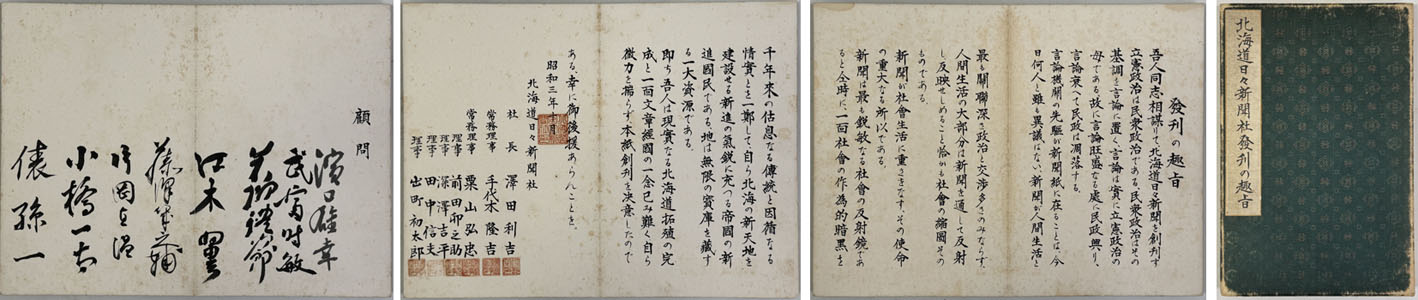 北海道日々新聞社發刊の趣旨
發刊の趣旨
吾人同志相謀りて、北海道日々新聞を創刊す
立憲政治は民衆政治である。民衆政治はその
基調を言論に置く、言論は實に立憲政治の
母である。故に言論旺盛なる處に民政興り、
言論衰へて民政は凋落する。
言論機關の先驅が新聞紙に在ることは、今
日何人と雖も異議はない、新聞が人間生活と
最も關聯深き政治と交渉多きのみならず、
人間生活の大部分は新聞を通して反射
し反映せしめること恰かも社會の縮圖その
ものである。
新聞が社會生活に重きをなす、その使命
の重大なる所以である。
新聞は最も鋭敏なる社會の反射鏡であ
ると仝時に、一面社會の作為的暗黒を
千年來の姑息なる傳統と因循なる
情實とを一擲して、自ら北海の新天地を
建設せる新進の氣鋭に充てる帝國の新
進國民である、地は無限の寳庫を藏す
る一大資源である。
即ち吾人は現實なる北海道拓殖の完
成と一面文章經國の一念已み難く自ら
微力を揣らず、本紙創刊を決意したので
ある、幸に御後援あらんことを。
昭和三年十月
北海道日々新聞社
社長 澤田利吉
常務理事 手代木隆吉
常務理事 粟山弘忠
理事 前田卯之助
理事 深澤吉平
理事 田中信
理事 出町初太郎
顧問
濱口雄幸
武富時敏
若槻禮次郎
江木翼
藤澤幾之輔
片岡直温
小橋一太
俵孫一